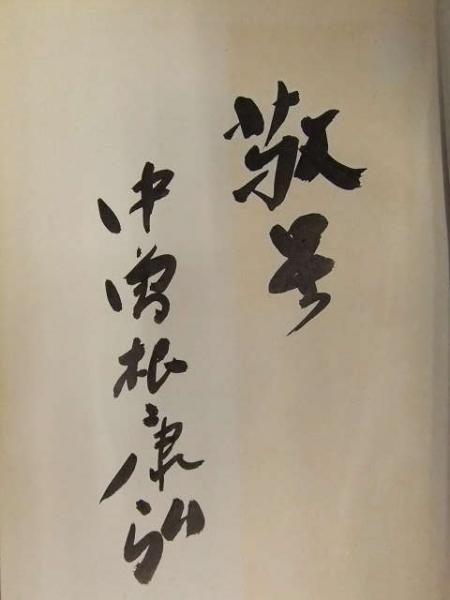 敬呈
中曽根康弘